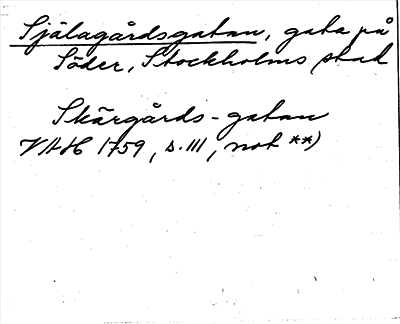 Själagårdsgatan, gata på
Söder, Stockholms stad
Skärgårds-gatan
VAH 1759, s. 111, not **)